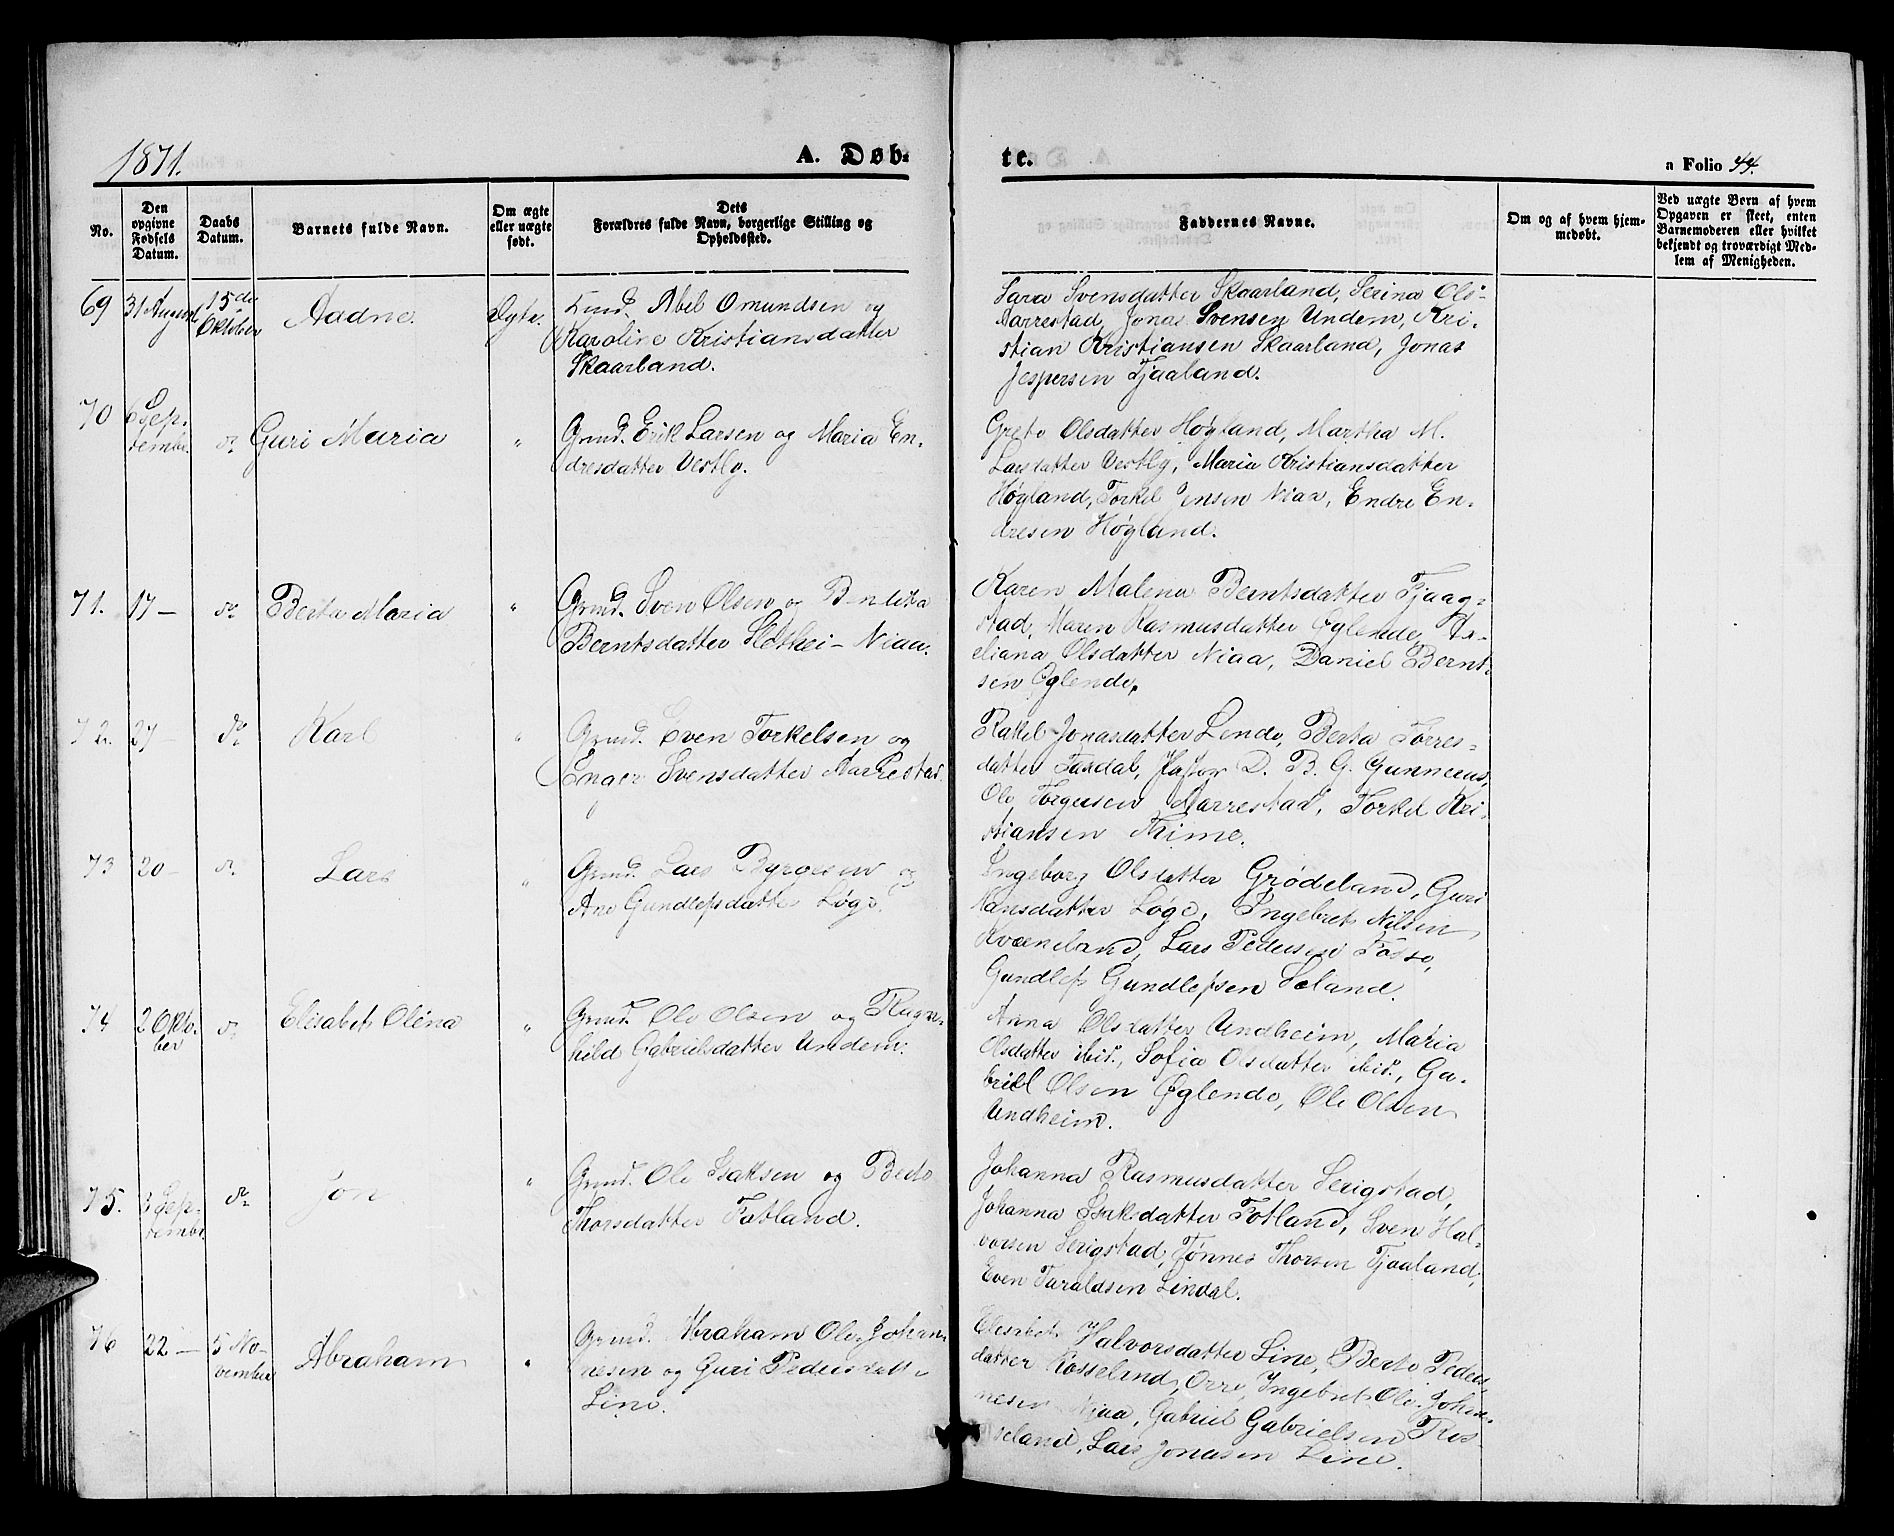 1871.
A. Døb-
te.
a Folio 44.
No.
Den
opgivne
Fødsels
Datum.
Daabs
Datum.
Barnets fulde Navn.
Om ægte
eller uægte
født.
Dets
Forældres fulde Navn, borgerlige Stilling og
Opholdssted.
Faddernes Navne.
Om og af hvem hjem-
medøbt.
Ved uægte Børn af hvem
Opgaven er skeet, enten
Barnemoderen eller hvilket
bekjendt og troværdigt Med-
lem af Menigheden.
69 31 August 15de
Oktober
Aadne.
Ægte.
Abel Omundsen og
Karoline Kristiansdatter
Skaarland.
Sara Svensdatter Skaarland, Serina Ols-
Aarrestad, Jonas Svensen Undem, Kri-
stian Kristiansen Skaarland, Jonas
Jespersen Tjaaland.
70 6 Sep-
tember do
Guri Maria
"
Grmd. Erik Larsen og Maria En-
dresdatter Vestly.
Grete Olsdatter Høyland, Martha M.
Larsdatter Vestly, Maria Kristiansdatter
Høyland, Torkel Jensen Niaa, Endre En-
dresen Høyland.
71. 17 — do
Berta Maria
"
Grmd. Sven Olsen og
Berntsdatter Slethei - Niaa.
Karen Malena Berntsdatter Tjaag-
stad, Maren Rasmusdatter Øglende,
eliana Olsdatter Niaa, Daniel Bernt-
sen Øglende.
72. 27 — do
Karl
"
Grmd. Even Torkelsen og
Svensdatter Aarrestad.
Rakel Jonasdatter Lende, Berta Torres-
datter Taxdal, Pastor D. B. G. Gunnerus,
Ole Torgersen Aarrestad, Torkel Kri-
stiansen Thime.
73 20 — do
Lars
"
Grmd. Lars Byrgesen og
Ane Gundlefsdatter Løge.
Ingeborg Olsdatter Grødeland, Guri
Hansdatter Løge, Ingebret Nilsen
Kvæneland, Lars Pedersen Fosse,
Gundlef Gundlefsen Søland.
74 2 Okto-
ber do
Elisabet Olena
"
Grmd. Ole Olsen og Ragn-
hild Gabrielsdatter Undem.
Anna Olsdatter Undheim, Maria
Olsdatter ibid., Sofia Olsdatter ibid., Ga-
briel Olsen Øglende, Ole Olsen
Undheim.
75. 3 Sep-
tember do
Jon
"
Grmd. Ole Isaksen og Berte
Thorsdatter Fotland.
Johanna Rasmusdatter Serigstad,
Johanna Isaksdatter Fotland, Sven Hal-
vorsen Serigstad, Tønnes Thorsen Tjaaland,
Even Taraldsen Lindal.
76 22 — 5 No-
vember
Abraham
"
Grmd. Abraham Ole Johan-
nesen og Guri Pedersdatter
Line.
Elisabet Halvorsdatter Line, Berte Peders-
datter Rosseland, Orre, Ingebret Ole Johan-
nesen Njaa, Gabriel Gabrielsen Ros-
seland, Lars Jonasen Line.